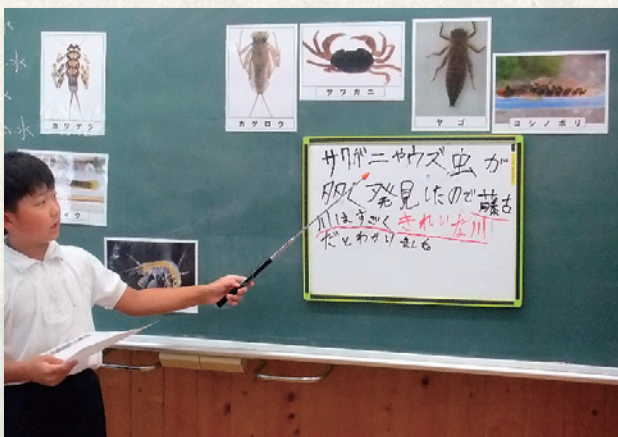 カワゲラ
カゲロウ
サワガニ
ヤゴ
ヨシノボリ
サワガニやウズ虫が
多く発見したので藤古
川はすごくきれいな川
だとわかりました